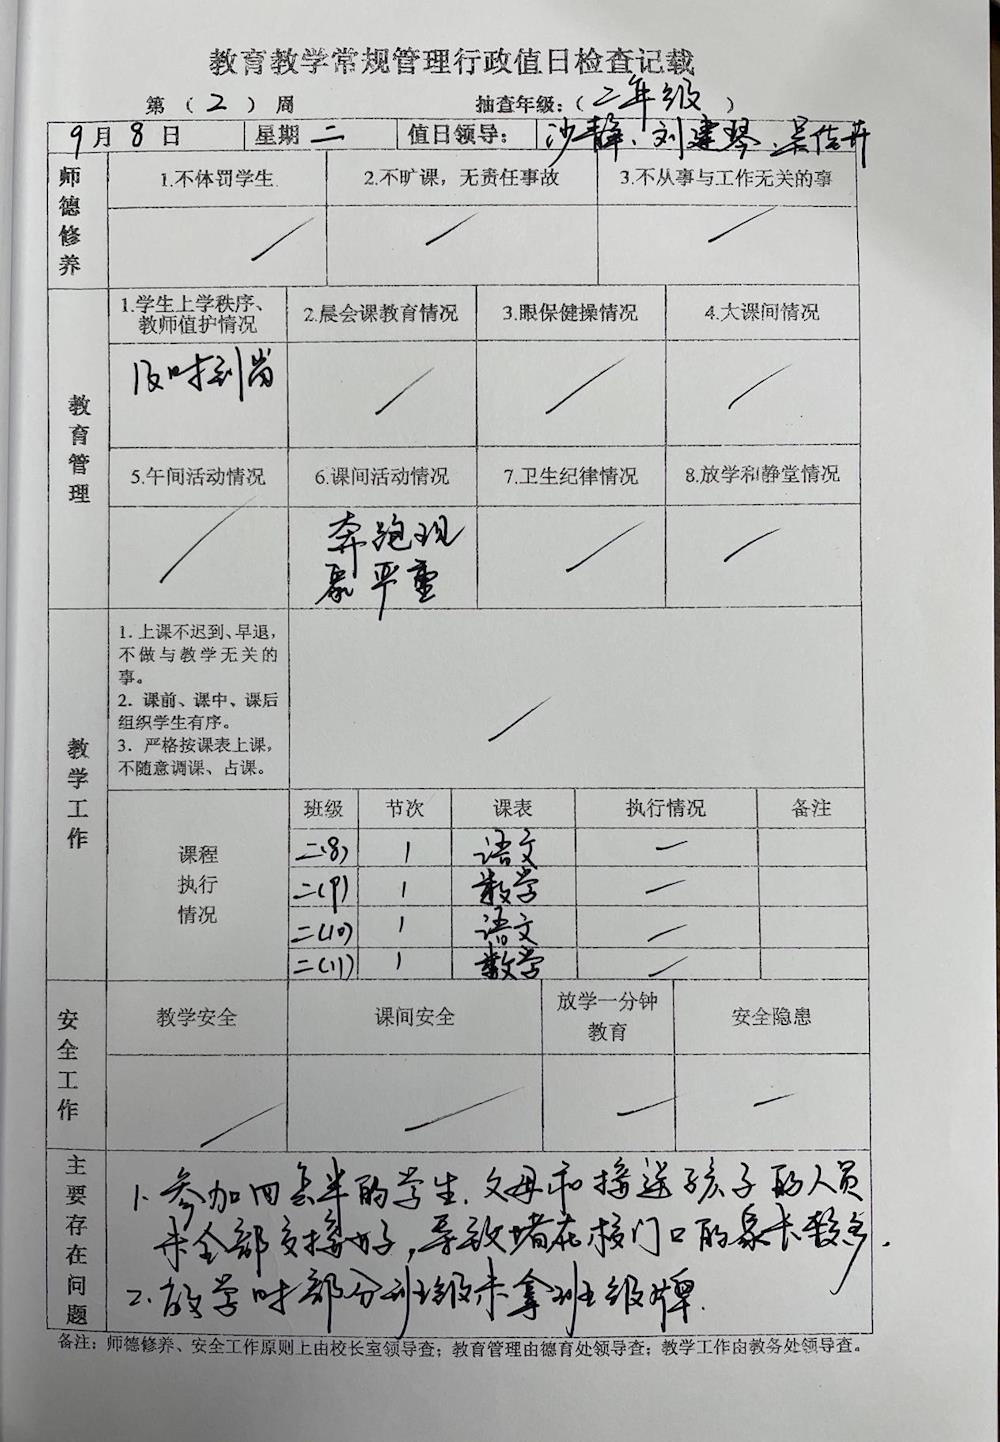 教育教学常规管理行政值日检查记载
第（2）周 抽查年级：（二年级）
9月8日 星期二 值日领导： 沙静、刘建琴、吴信卉
师德修养
1.不体罚学生 2.不旷课，无责任事故 3.不从事与工作无关的事
教育管理
1.学生上学秩序、教师值护情况 2.晨会课教育情况 3.眼保健操情况 4.大课间情况
及时到岗
5.午间活动情况 6.课间活动情况 7.卫生纪律情况 8.放学和静堂情况
奔跑现
象严重
教学工作
1. 上课不迟到、早退，
不做与教学无关的
事。
2. 课前、课中、课后
组织学生有序。
3. 严格按课表上课，
不随意调课、占课。
课程
执行
情况
班级 节次 课表 执行情况 备注
二(8) 1 语文
二(9) 1 数学
二(10) 1 语文
二(11) 1 数学
安全工作
教学安全 课间安全 放学一分钟教育 安全隐患
主要存在问题
1. 参加四点半的学生.父母和接送孩子的人员
未全部交接好，导致堵在校门口的家长较多.
2. 放学时部分班级未拿班级牌.
备注：师德修养、安全工作原则上由校长室领导查；教育管理由德育处领导查；教学工作由教务处领导查。